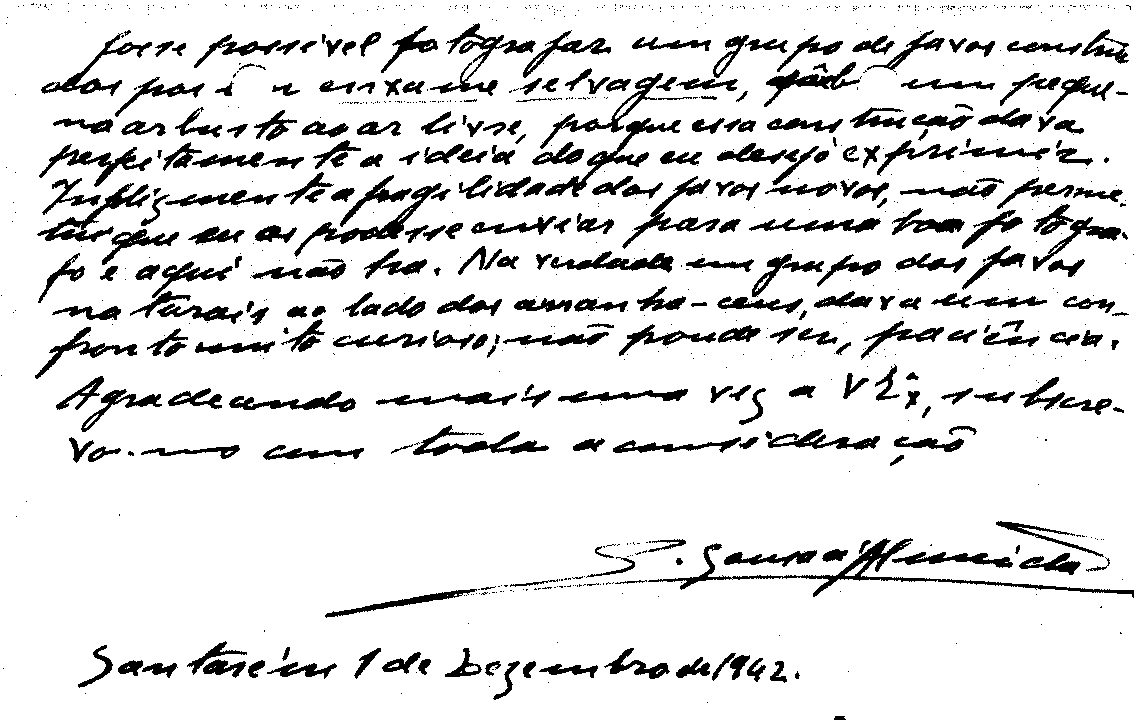 fosse possivel fotografar um grupo de favos constrúi
dos por um enxame selvagem, sôb um peque-
no arbusto ao ar livre, porque essa construção dava
perfeitamente a ideia do que eu desejo exprimir.
Infelizmente a fragilidade dos favos novos, não perme
tiu que eu os podesse enviar para uma boa fotogra-
fo e aqui não ha. Na verdade um grupo dos favos
naturais ao lado dos arranha-ceus, dava um con-
fronto muito curioso; não poude ser, paciência.
Agradecendo mais uma vez a V Ex.ª, subscre-
vo-me com toda a consideração
S. Sousa d'Almeida
Santarém 1 de Dezembro de 1942.